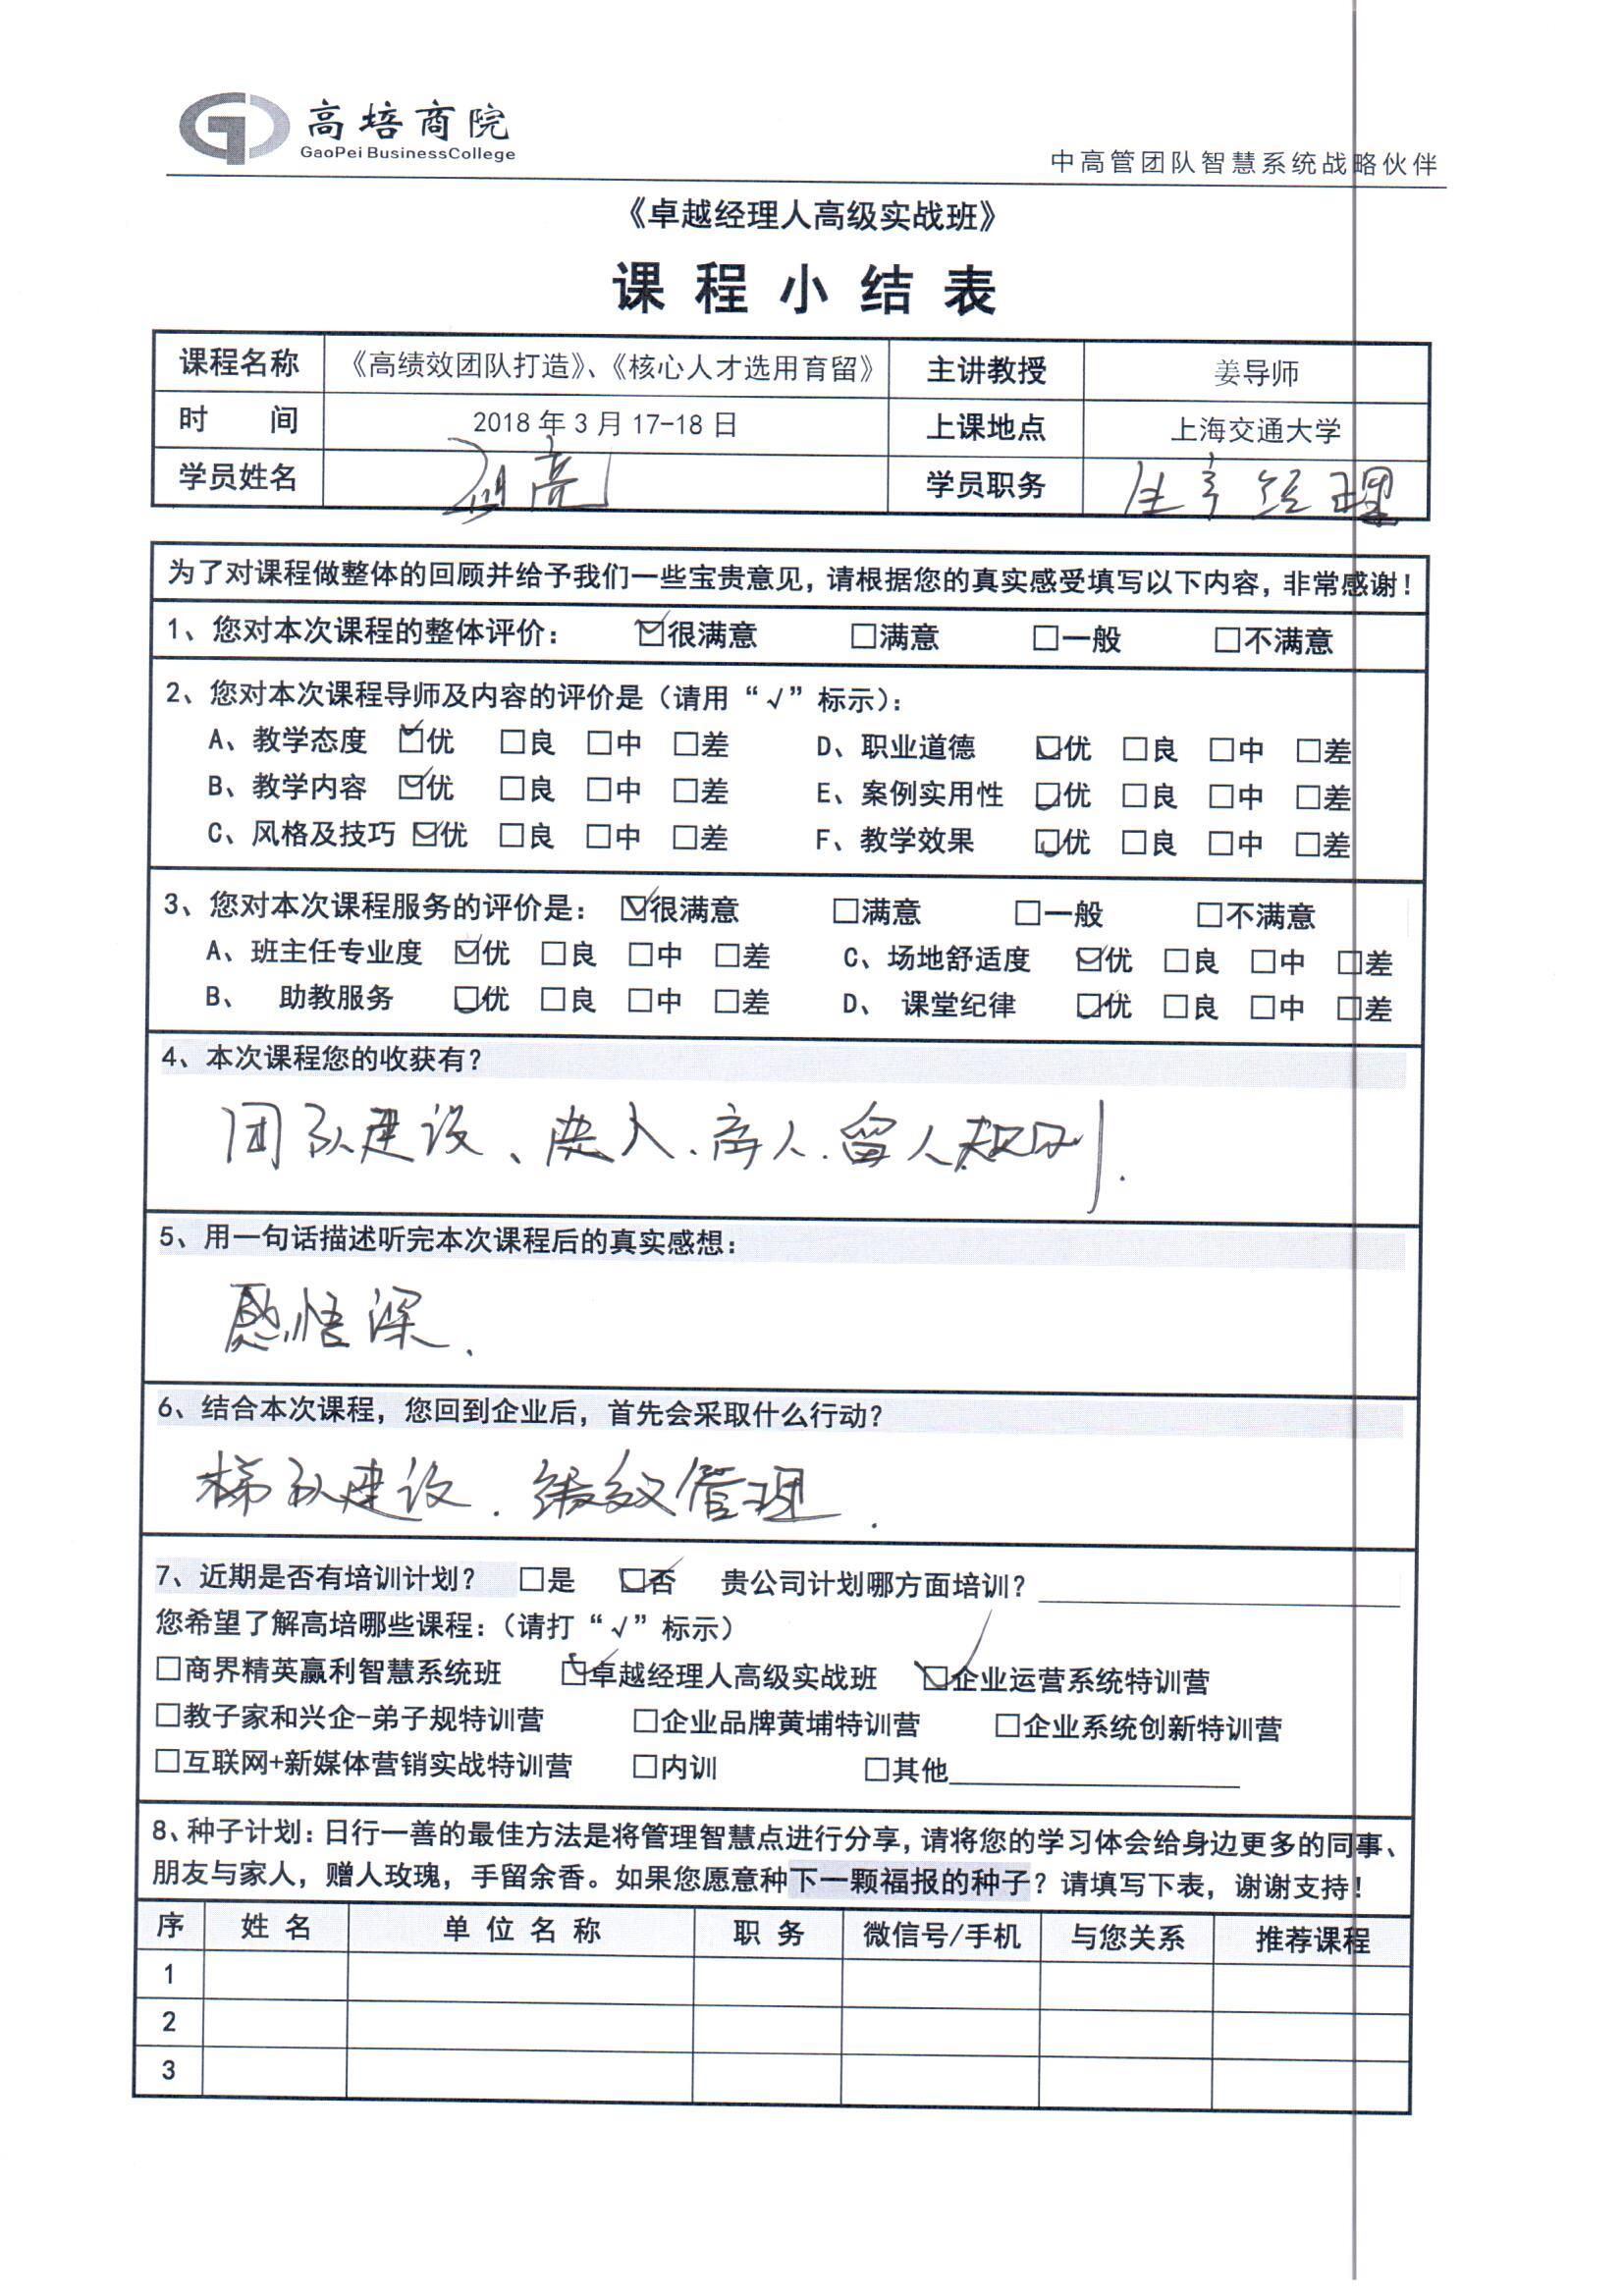 高培商院
GaoPei BusinessCollege
中高管团队智慧系统战略伙伴
《卓越经理人高级实战班》
课程小结表
课程名称 《高绩效团队打造》、《核心人才选用育留》 主讲教授 姜导师
时 间 2018年3月17-18日 上课地点 上海交通大学
学员姓名 亮 学员职务 生产经理
为了对课程做整体的回顾并给予我们一些宝贵意见,请根据您的真实感受填写以下内容,非常感谢!
1、您对本次课程的整体评价: ☑很满意 □满意 □一般 □不满意
2、您对本次课程导师及内容的评价是(请用“√”标示):
A、教学态度 ☑优 □良 □中 □差 D、职业道德 ☑优 □良 □中 □差
B、教学内容 ☑优 □良 □中 □差 E、案例实用性 ☑优 □良 □中 □差
C、风格及技巧 ☑优 □良 □中 □差 F、教学效果 ☑优 □良 □中 □差
3、您对本次课程服务的评价是: ☑很满意 □满意 □一般 □不满意
A、班主任专业度 ☑优 □良 □中 □差 C、场地舒适度 ☑优 □良 □中 □差
B、 助教服务 ☑优 □良 □中 □差 D、 课堂纪律 ☑优 □良 □中 □差
4、本次课程您的收获有?
团队建设、人.人.留人规则.
5、用一句话描述听完本次课程后的真实感想:
感悟深.
6、结合本次课程,您回到企业后,首先会采取什么行动?
梯队建设.绩效管理.
7、近期是否有培训计划? □是 ☑否 贵公司计划哪方面培训?
您希望了解高培哪些课程:(请打“√”标示)
□商界精英赢利智慧系统班 ☑卓越经理人高级实战班 ☑企业运营系统特训营
□教子家和兴企-弟子规特训营 □企业品牌黄埔特训营 □企业系统创新特训营
□互联网+新媒体营销实战特训营 □内训 □其他
8、种子计划:日行一善的最佳方法是将管理智慧点进行分享,请将您的学习体会给身边更多的同事、
朋友与家人,赠人玫瑰,手留余香。如果您愿意种下一颗福报的种子?请填写下表,谢谢支持!
序 姓名 单位名称 职务 微信号/手机 与您关系 推荐课程
1
2
3